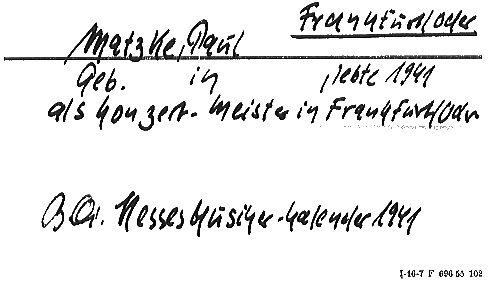 Frankfurt/Oder
Matzke, Paul
Geb. in , lebte 1941
als Konzert-Meister in Frankfurt/Oder
Hesses Musiker-Kalender 1941
I-16-7 F 696 55 102